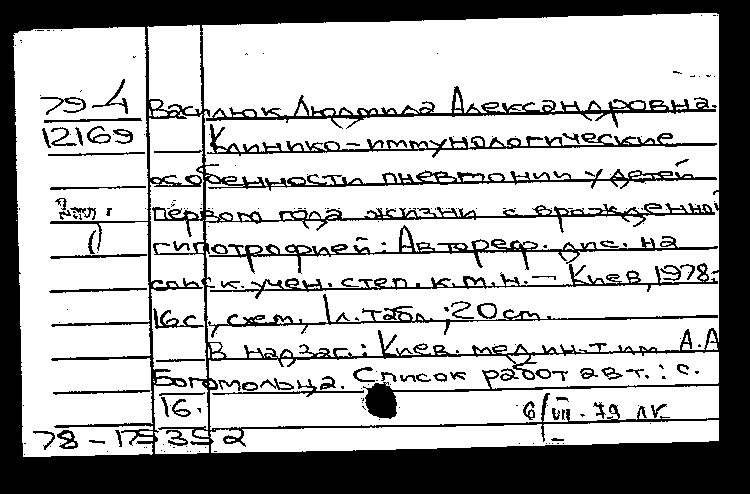 79-4 Василюк, Людмила Александровна.
12169 Клинико-иммунологические
особенности пневмонии у детей
первого года жизни с врожденной
гипотрофией: Автореф. дис. на
соиск. учен. степ. к.м.н. - Киев, 1978.
16с., схем., 1л. табл.; 20 см.
В надзаг.: Киев. мед. ин.т им А.А
Богомольца. Список работ авт.: с.
16.
6/VII-79 ЛК
78-175352